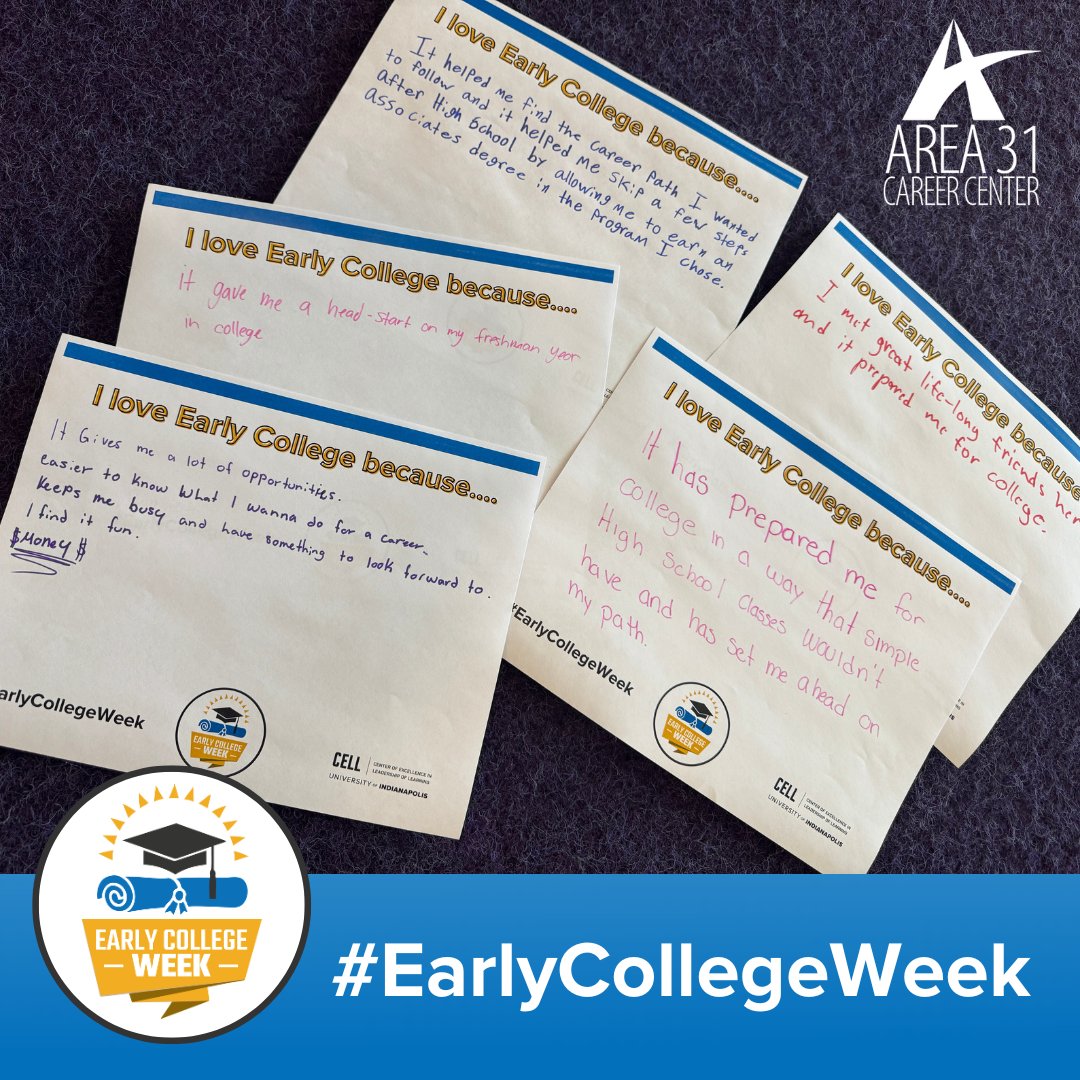 AREA 31
CAREER CENTER
I love Early College because....
It helped me find the career Path I wanted
to follow and it helped me skip a few steps
After High School by allowing me to earn an
associates degree in the program I chose.
I love Early College because....
it gave me a head-start on my freshman year
in college
I love Early College because
I met great life-long friends her
and it prepared me for college.
I love Early College because....
It Gives me a lot of opportunities.
easier to know what I wanna do for a career.
keeps me busy and have something to look forward to.
I find it fun.
$Money$
arlyCollegeWeek
EARLY COLLEGE
WEEK
CELL
CENTER OF EXCELLENCE IN
LEADERSHIP OF LEARNING
UNIVERSITY OF INDIANAPOLIS
I love Early College because....
It has prepared me for
college in a way that simple
High School classes wouldn't
have and has set me ahead on
my path.
#EarlyCollegeWeek
EARLY COLLEGE
WEEK
CELL
CENTER OF EXCELLENCE IN
LEADERSHIP OF LEARNING
UNIVERSITY OF INDIANAPOLIS
EARLY COLLEGE
WEEK
#EarlyCollegeWeek